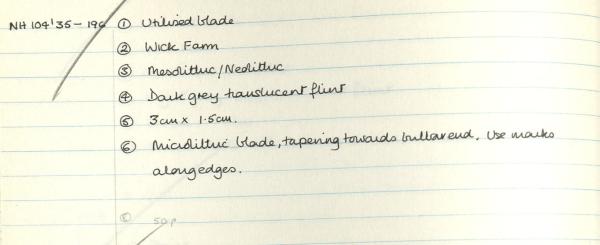 NH 104'35-196 ① Utilised blade
② Wick Farm
③ Mesolithic/Neolithic
④ Dark grey translucent flint
⑤ 3cm x 1.5cm.
⑥ Microlithic blade, tapering towards bulbar end. Use marks
along edges.
50p